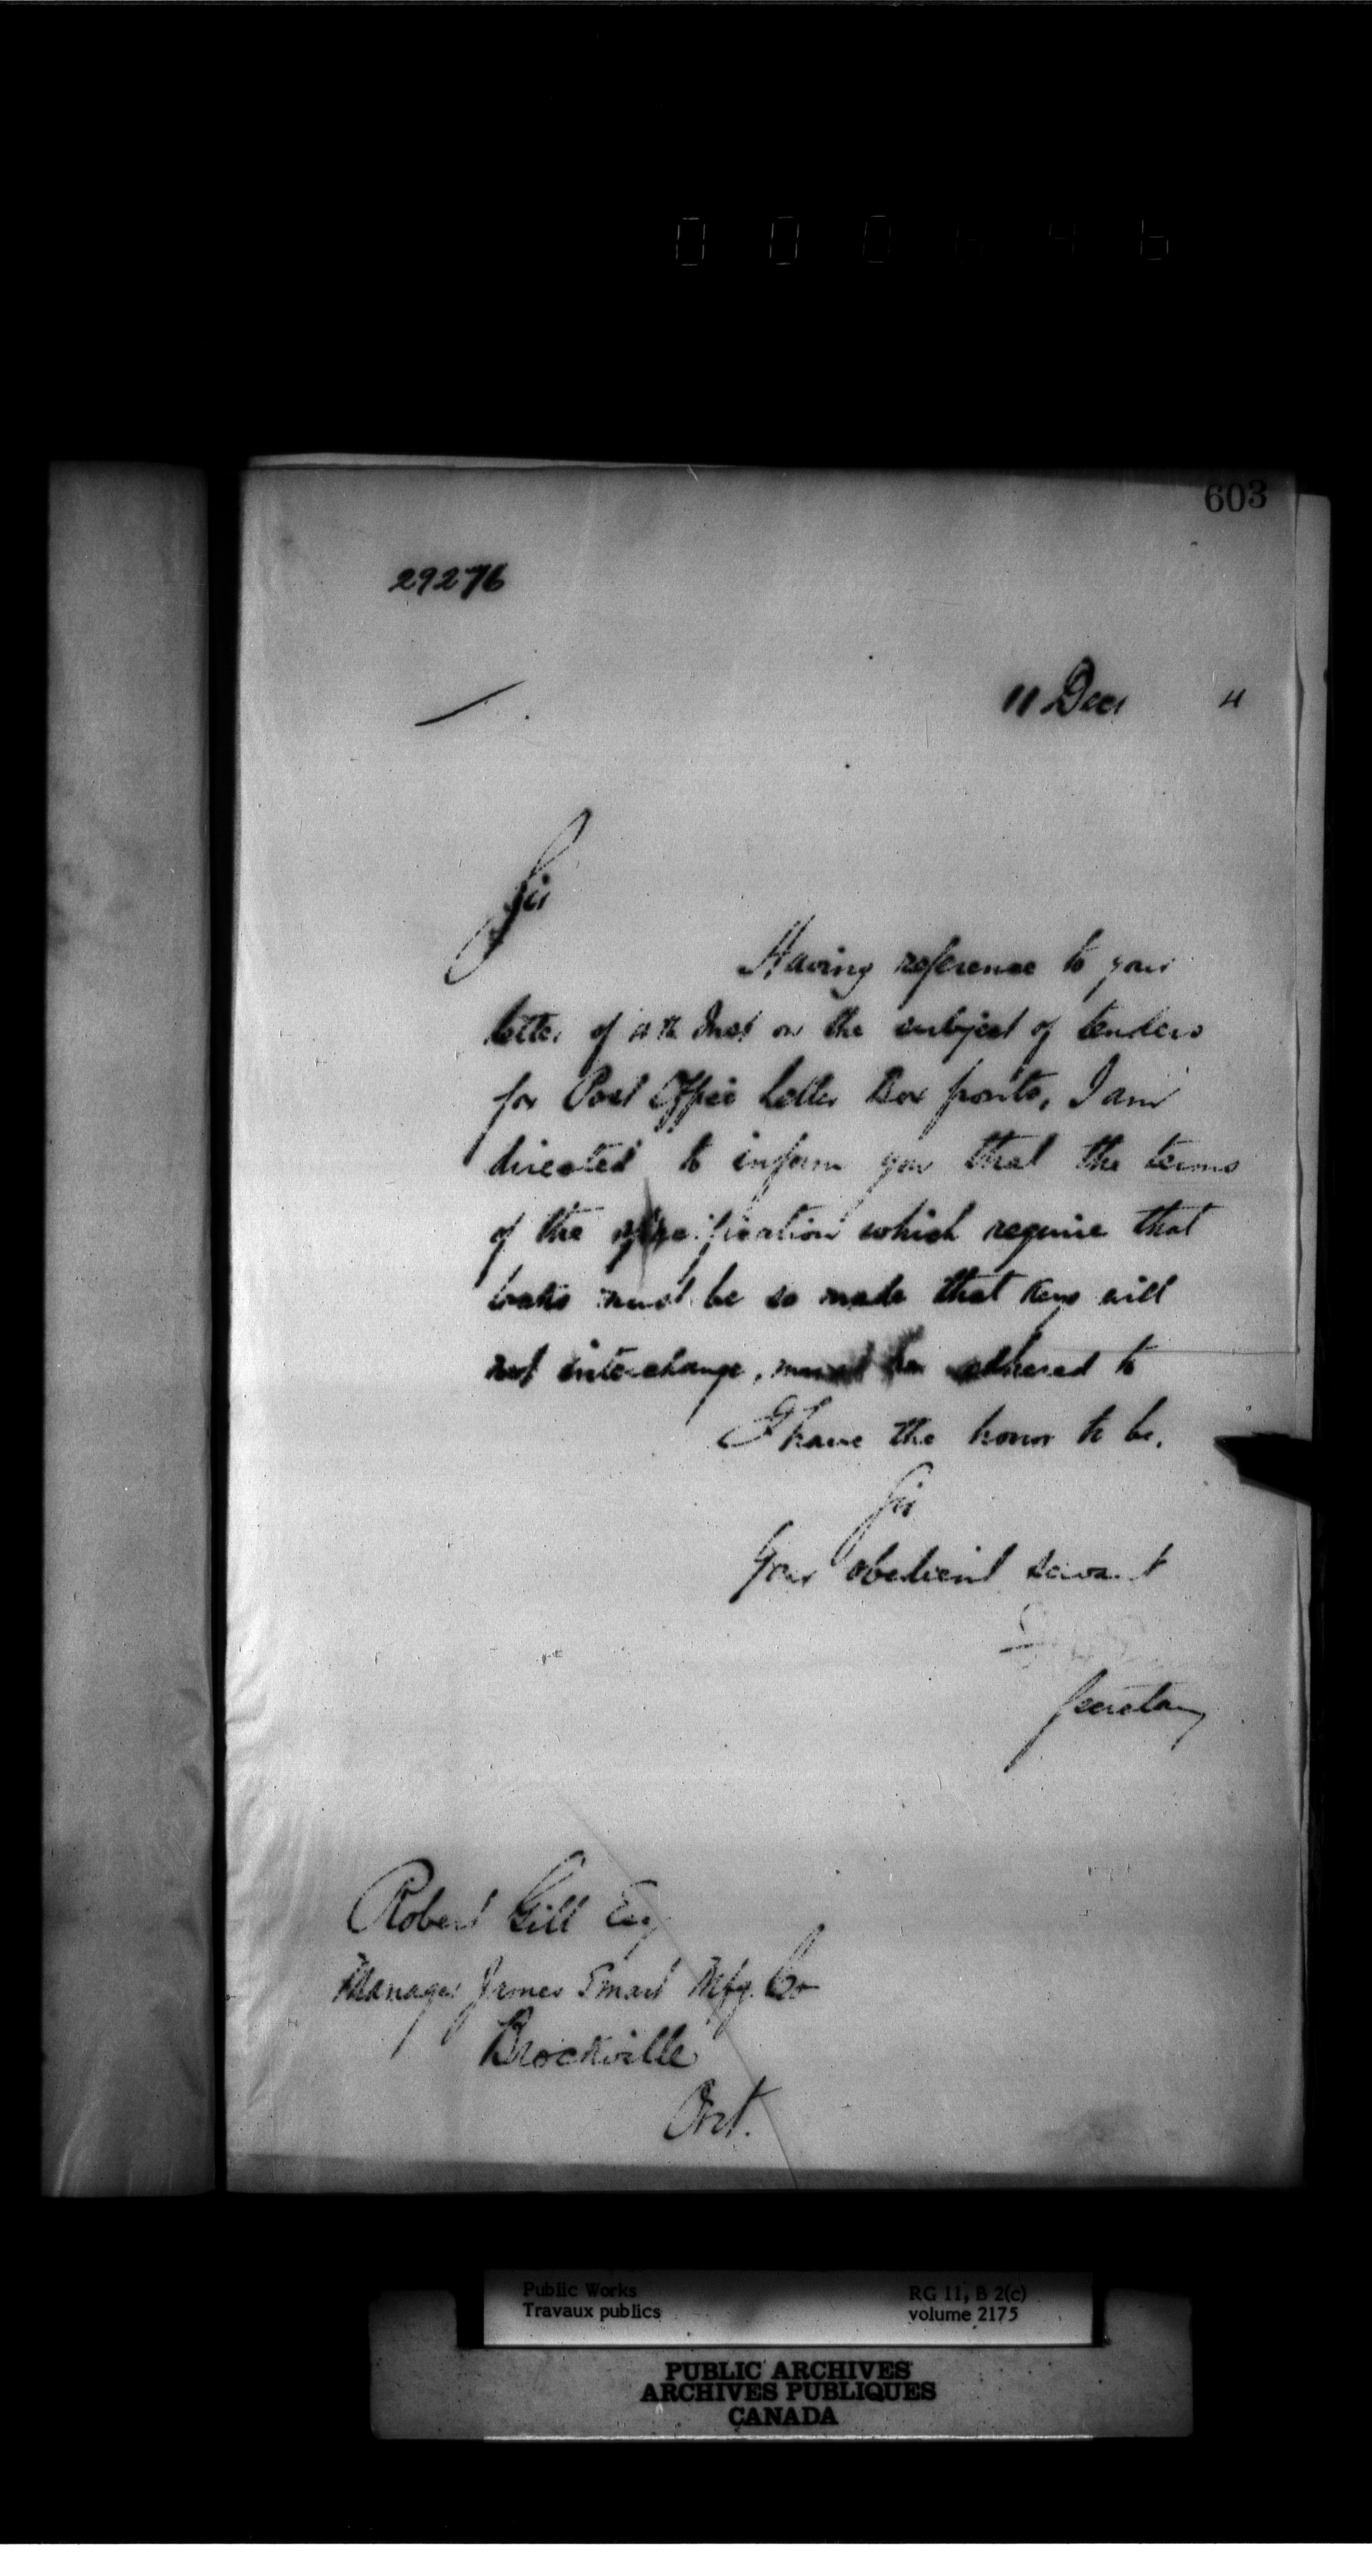 000646
603
29276
11 Decr 4
Sir
Having reference to your
letter of Inst on the subject of tenders
for Post Office Letter Box fronts, I am
directed to inform you that the terms
of the specification which require that
locks must be so made that keys will
not interchange, must be adhered to
I have the honor to be,
Sir
Your obedient servant
Secretary
Robert Gill Esq
Manager James Smart Mfg. Co
Brockville
Ont.
Public Works RG 11, B 2(c)
Travaux publics volume 2175
PUBLIC ARCHIVES
ARCHIVES PUBLIQUES
CANADA